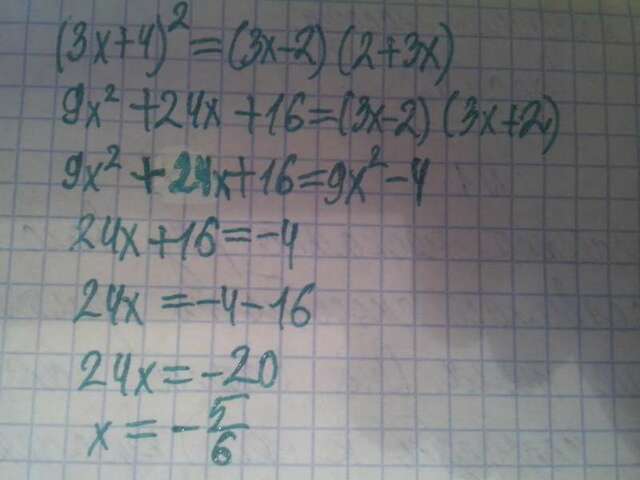 (3x+4)²=(3x-2)(2+3x)
9x²+24x+16=(3x-2)(3x+2)
9x²+24x+16=9x²-4
24x+16=-4
24x=-4-16
24x=-20
x=-5/6